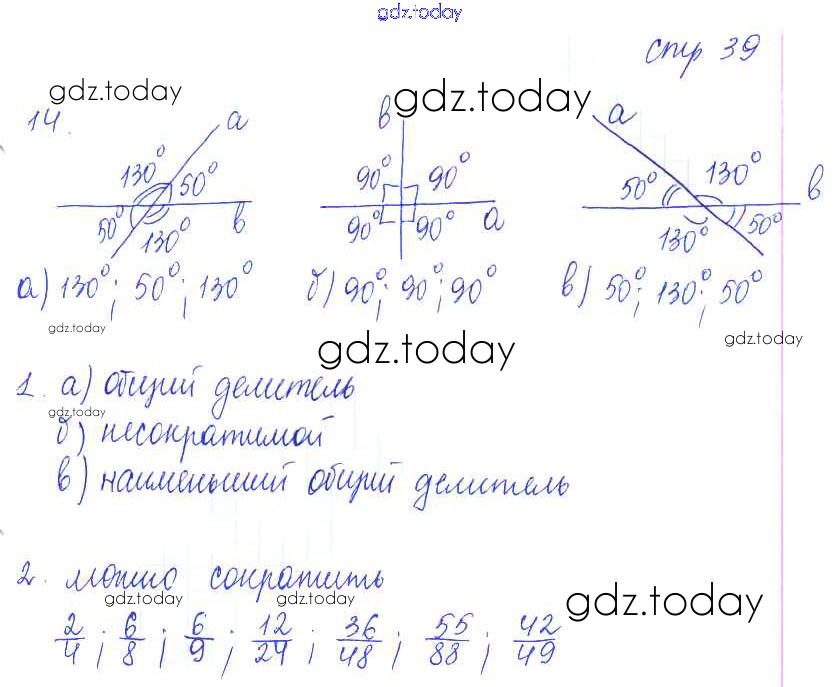 gdz.today
стр 39
gdz.today
gdz.today
14.
a
в
a
130° 50°
90° 90°
50° 130° в
50° 130° в
90° 90° a
130° 50°
а) 130°; 50°; 130° б) 90°; 90°; 90° в) 50°; 130°; 50°
gdz.today
gdz.today
gdz.today
1. а) общий делитель
gdz.today
б) несократимой
в) наименьший общий делитель
2. можно сократить
gdz.today gdz.today gdz.today
2/4; 6/8; 6/9; 12/24; 36/48; 55/88; 42/49